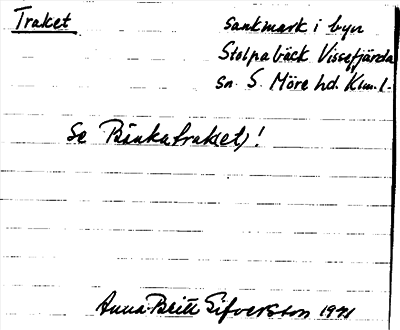 Traket
sankmark i byn
Stolpabäck Vissefjärda
sn. S. Möre hd. Klm. l.
Se Binkatraket)!
Anna-Britt Sifversson 1971